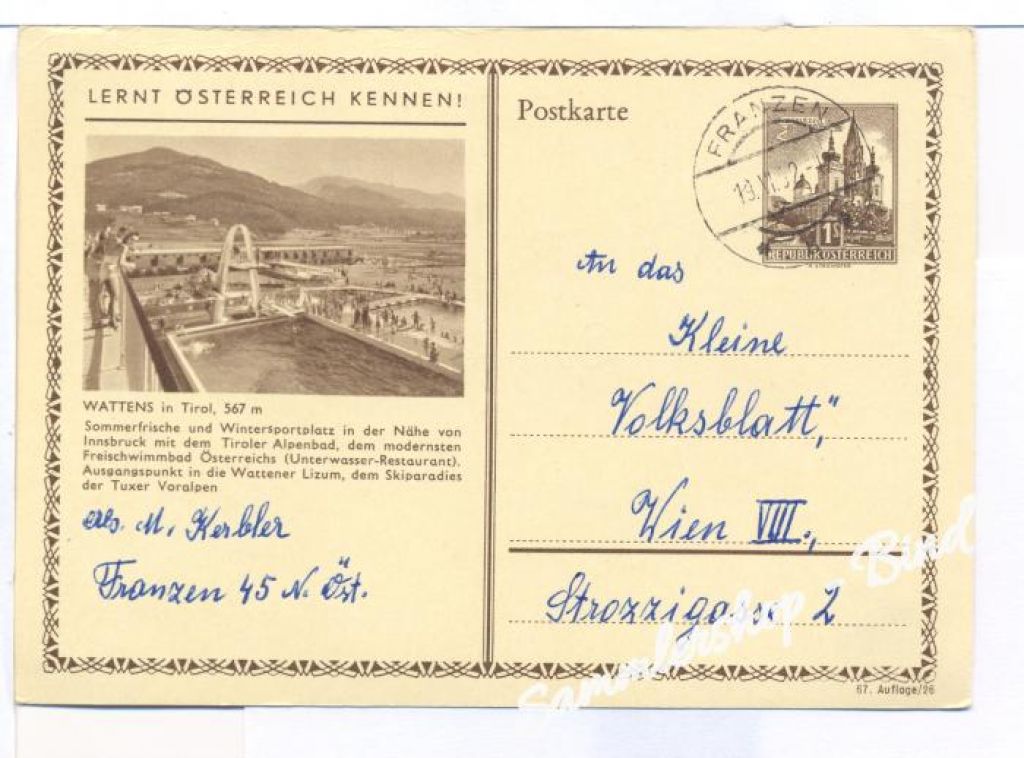 LERNT ÖSTERREICH KENNEN!
WATTENS in Tirol, 567 m
Sommerfrische und Wintersportplatz in der Nähe von
Innsbruck mit dem Tiroler Alpenbad, dem modernsten
Freischwimmbad Österreichs (Unterwasser-Restaurant).
Ausgangspunkt in die Wattener Lizum, dem Skiparadies
der Tuxer Voralpen
M. Kerbler
Franzen 45 N. Öst.
Postkarte
FRANZEN
1S
REPUBLIK ÖSTERREICH
An das
Kleine
Volksblatt,"
Wien VIII.,
Strozzigasse 2
Sammlershop - Bind
67. Auflage/26